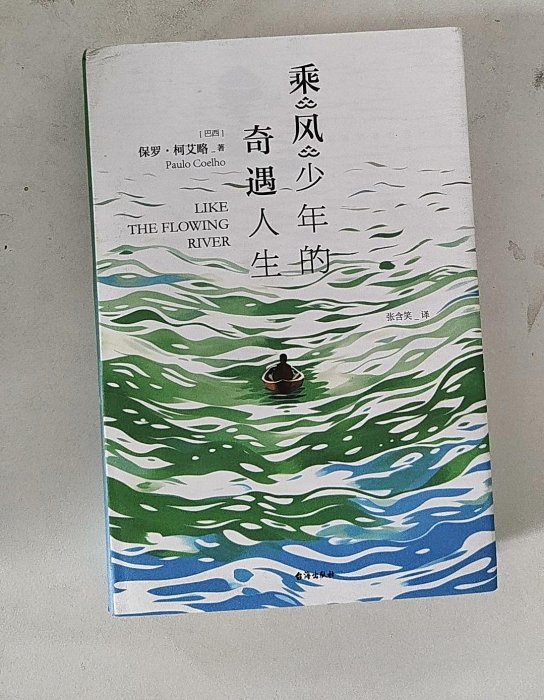 乘风少年的
奇遇人生
[巴西]
保罗·柯艾略_著
Paulo Coelho
LIKE
THE FLOWING
RIVER
张含笑_译
台海出版社